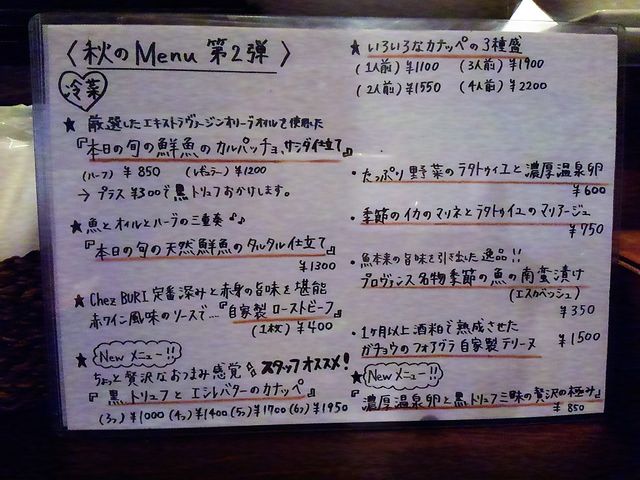 〈秋のMenu 第2弾〉
冷菜
★ 厳選したエキストラヴァージンオリーブオイルで使用した
『本日の旬の鮮魚のカルパッチョ、サラダ仕立て』
(ハーフ) ¥850 (レギュラー) ¥1200
→ プラス ¥300で黒トリュフおかけします。
★ 魚とオイルとハーブの三重奏♪♪
『本日の旬の天然鮮魚のタルタル仕立て』
¥1300
★ Chez BURI 定番 深みと赤身の旨味を堪能
赤ワイン風味のソースで…『自家製ローストビーフ』
(1枚) ¥400
★ Newメニュー!!
ちょっと贅沢なおつまみ感覚 スタッフオススメ!
『黒トリュフとエシレバターのカナッペ』
(3つ) ¥1000 (4つ) ¥1400 (5つ) ¥1700 (6つ) ¥1950
★ いろいろなカナッペの3種盛
(1人前) ¥1100 (3人前) ¥1900
(2人前) ¥1550 (4人前) ¥2200
・たっぷり野菜のラタトゥイユと濃厚温泉卵
¥600
・季節のイカのマリネとラタトゥイユのマリアージュ
¥750
・魚本来の旨味を引き出した逸品!!
プロヴァンス名物季節の魚の南蛮漬け
(エスカベッシュ)
¥350
・1ヶ月以上酒粕で熟成させた
ガチョウのフォアグラ自家製テリーヌ ¥1500
★ Newメニュー!!
『濃厚温泉卵と黒トリュフ三昧の贅沢の極み』
¥850